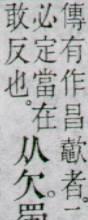 傳有作昌歜者。
必定當在
敢反也。
从欠。